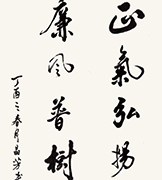 正氣弘揚
廉風普樹
丁酉之春月